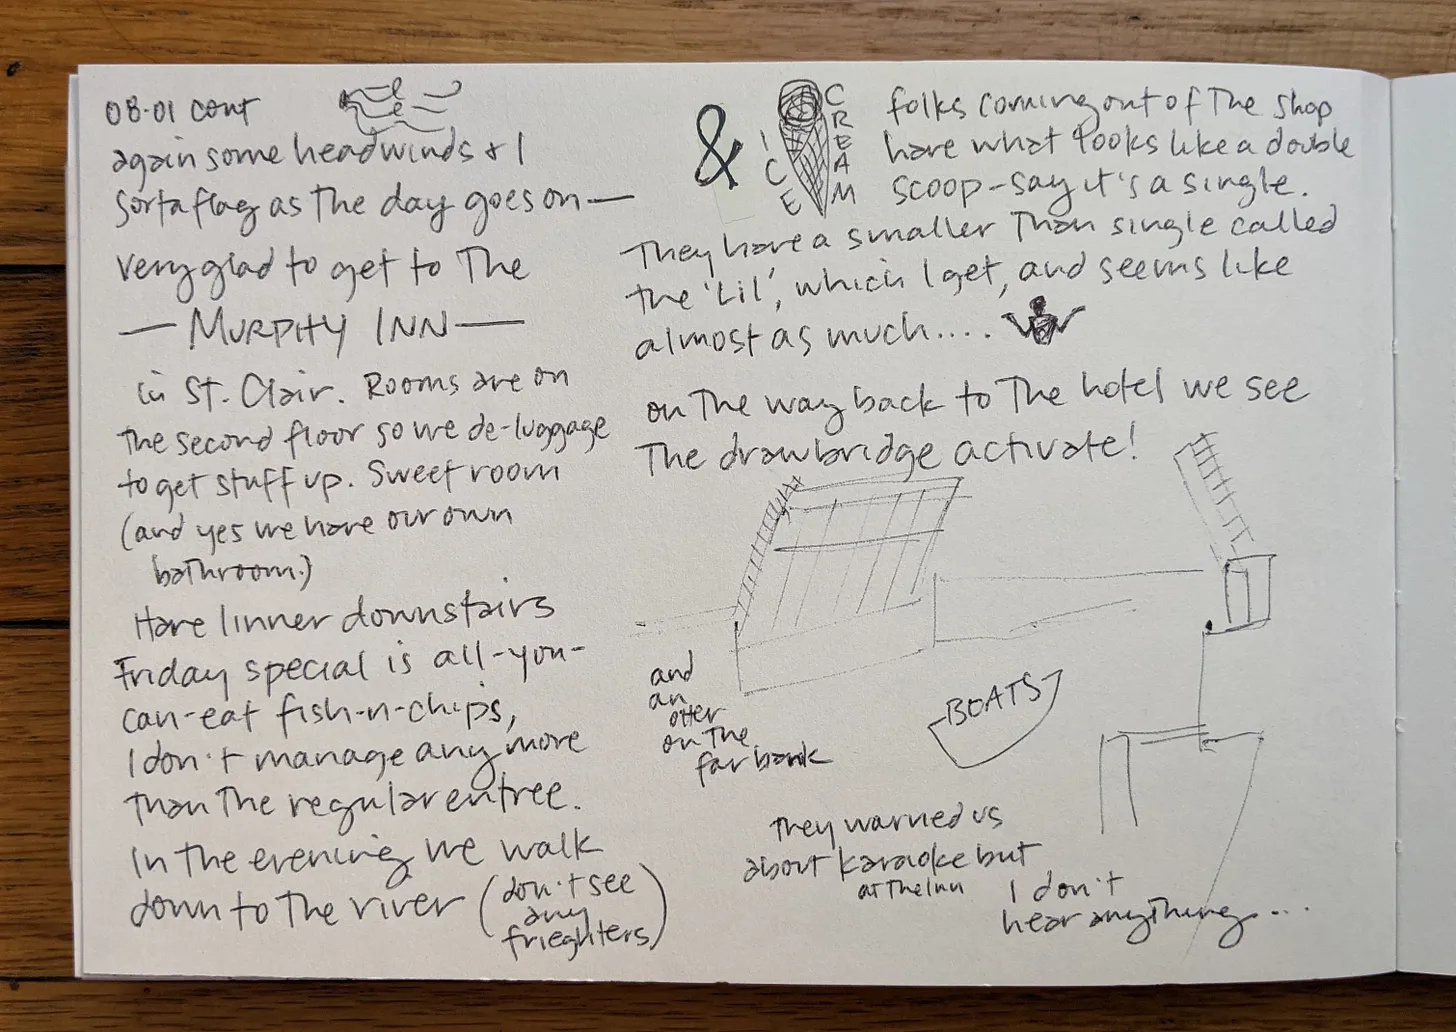 08-01 cont
again some headwinds & I
sorta flag as the day goes on —
very glad to get to the
— MURPHY INN —
in St. Clair. Rooms are on
the second floor so we de-luggage
to get stuff up. Sweet room
(and yes we have our own
bathroom.)
Have linner downstairs
Friday special is all-you-
can-eat fish-n-chips,
I don't manage any more
than the regular entree.
In the evening we walk
down to the river (don't see
any
frieghters)
& ICE CREAM
folks coming out of the shop
have what looks like a double
scoop - say it's a single.
They have a smaller than single called
the 'Lil', which I get, and seems like
almost as much....
on the way back to the hotel we see
the drawbridge activate!
and
an
otter
on the
far bank
BOATS
They warned us
about karaoke but
at the Inn
I don't
hear anything...